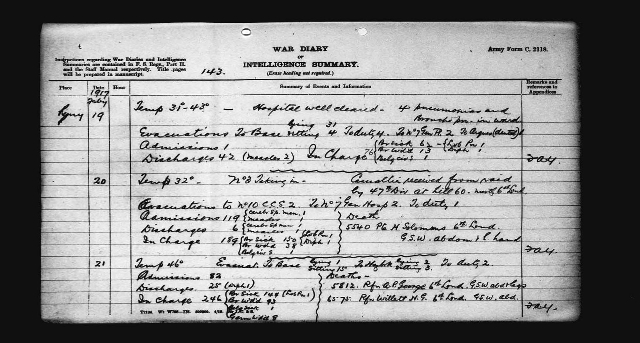 WAR DIARY
OF
INTELLIGENCE SUMMARY.
(Erase heading not required.)
Army Form C. 2118.
Instructions regarding War Diaries and Intelligence
Summaries are contained in F. S. Regs., Part II.
and the Staff Manual respectively. Title pages
will be prepared in manuscript.
143.
Place
Date
Hour
Summary of Events and Information
Remarks and
references to
Appendices
1917
19
Temp 35-43° — Hospital well cleared - 4 pneumonias and
in ward
Lying 31
Evacuations To Base sitting 4 To duty 4.
Admissions 1
Discharges 42 (measles 2) In Charge 76
Br Sick 62
Br Wd'd 13
Belgius 1
20
Temp 32° - No 8 Taking in - received from raid
by 47th Div. at hill 60.
Evacuations to No 10 CCS 2. To No 7 Gen Hosp 2. To duty 1
Admissions 119
measles
Discharges 6
measles 1
In Charge 189
Br Sick 150
Br Wd'd 38
Death
5540 Pte H. Solomons 6th Lond.
G.S.W. abdom & hand
21
Temp 46° Evacuat. To Base Lying 2 Sitting 15 Sitting 3. To duty 2
Admissions 82
Discharges 25
In Charge 246
Br Sick 144
Br Wd'd 93
Deaths -
5812. Rfn A.P. George 6th Lond. G.S.W. abd & legs
6575. Rfn Willett H.G. 6th Lond. G.S.W. abd.